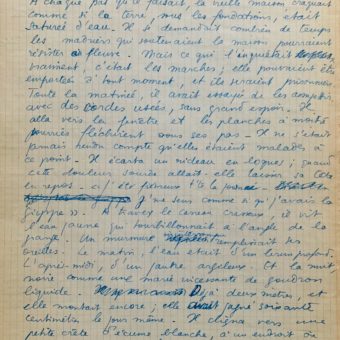 A chaque pas qu'il faisait, la vieille maison craquait
comme si la terre, sous les fondations, était
saturée d'eau. Il se demandait combien de temps
les madriers qui soutenaient la maison pourraient
résister au fleuve. Mais ce qui l'inquiétait
vraiment, c'était les marches, elles pouvaient être
emportées à tout moment, et ils seraient prisonniers
Toute la matinée, il avait essayé de les
avec des cordes usées, sans grand espoir. Il
alla vers la fenêtre et les planches à moitié
pourries fléchirent sous ses pas. Il ne s'était
jamais rendu compte qu'elles étaient malades à
ce point. Il écarta un rideau en loques ; quand
cette douleur sourde
en repos
J'me sens comme si j'avais la
grippe ». A travers le carreau crasseux, il vit
l'eau jaune qui tourbillonnait à l'angle de la
grange. Un murmure remplissait ses
oreilles. Le matin, l'eau était d'un brun profond.
L'après-midi, d'un jaune argileux. Et la nuit
noire comme une marée incessante de goudron
liquide. Déjà deux mètres, et
elle montait encore ; elle avait soixante
centimètres le jour même. Il cligna vers une
petite crête d'écume blanche, à un endroit où